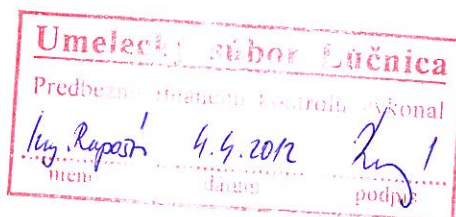 Umelecký súbor Lúčnica
Predbežnú finančnú kontrolu vykonal
Ing. 4.4.2012
meno dátum podpis